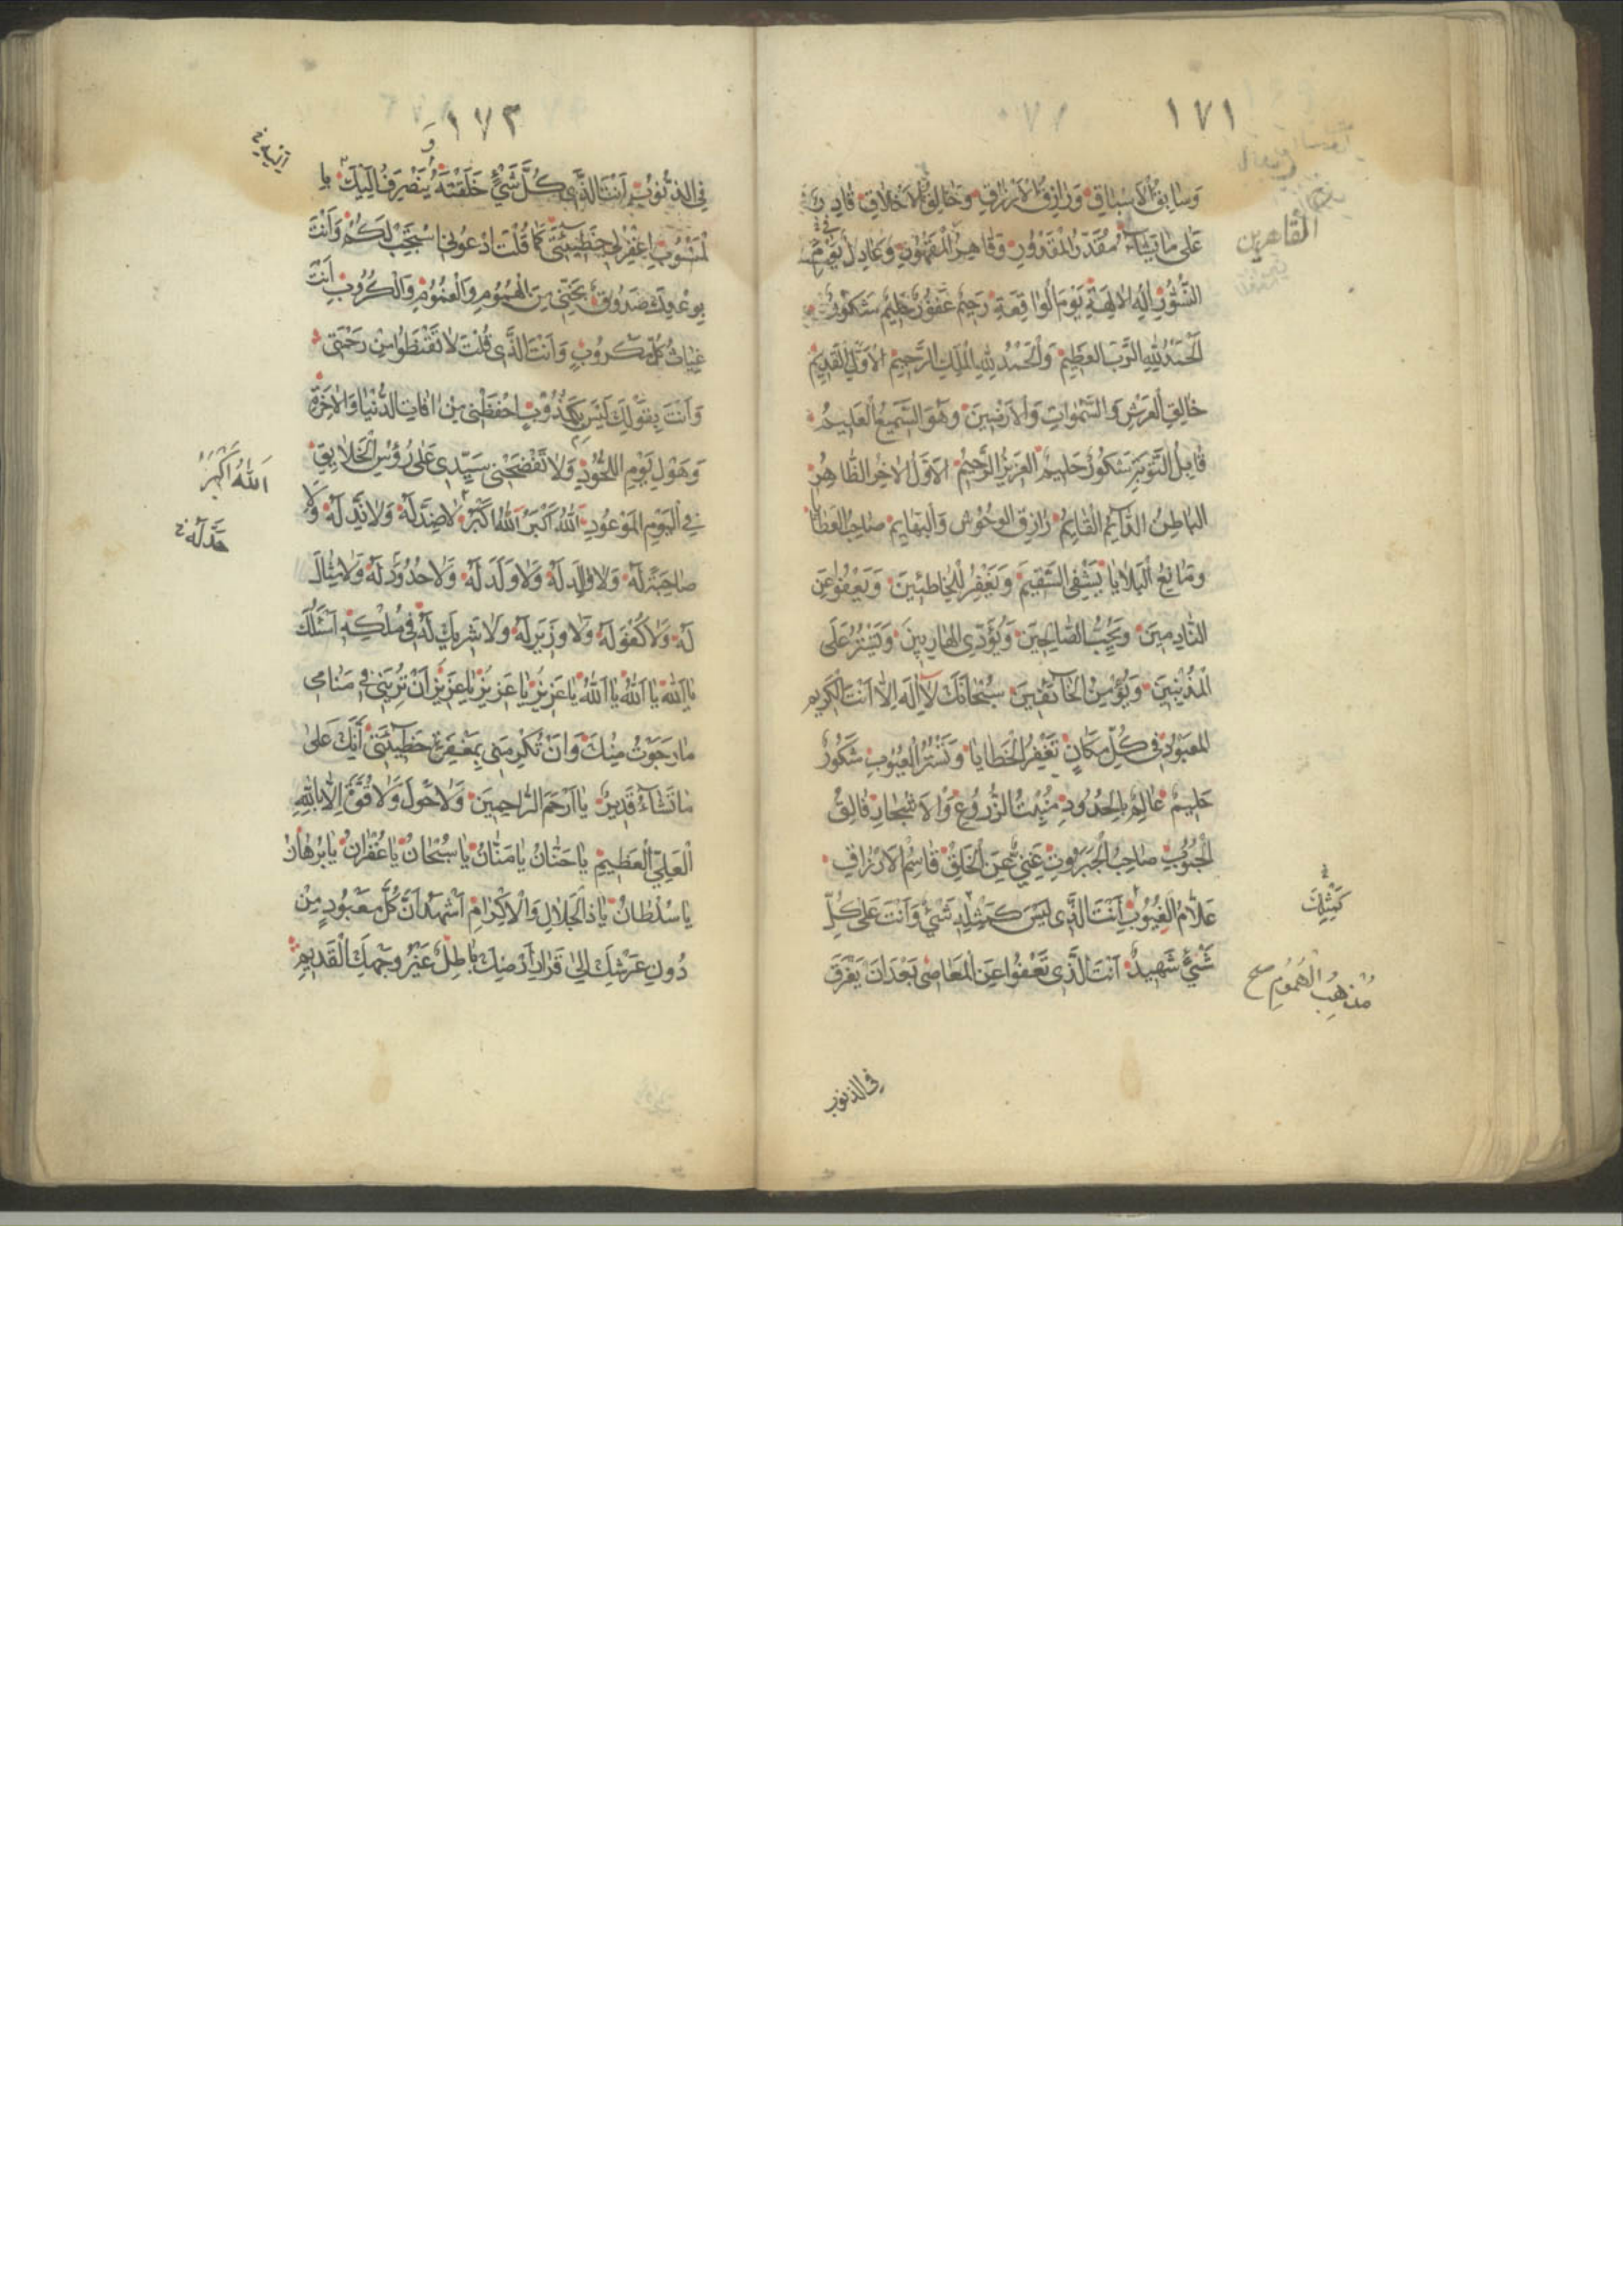 ١٧١
وَسَابِقُ الْاَسْبَاقِ وَرَازِقُ الْاَرْزَاقِ وَخَالِقُ الْاَخْلَاقِ قَادِرٌ
عَلٰى مَا يَشَآءُ مُقَدِّرُ الْمَقْدُورِ وَقَاهِرُ الْمَقْهُورِ وَعَادِلٌ يَوْمَ
النُّشُورِ اِلٰهُ الْاٰلِهَةِ يَوْمَ الْوَاقِعَةِ رَحِيمٌ غَفُورٌ حَلِيمٌ شَكُورٌ
اَلْحَمْدُ لِلّٰهِ الرَّبِّ الْعَظِيمِ وَالْحَمْدُ لِلّٰهِ الْمَلِكِ الرَّحِيمِ الْاَوَّلِ الْقَدِيمِ
خَالِقِ الْعَرْشِ وَالسَّمٰوَاتِ وَالْاَرَضِينَ وَهُوَ السَّمِيعُ الْعَلِيمُ
قَابِلُ التَّوْبَةِ شَكُورٌ حَلِيمٌ الْعَزِيزُ الرَّحِيمُ الْاَوَّلُ الْاٰخِرُ الظَّاهِرُ
الْبَاطِنُ الدَّآئِمُ الْقَائِمُ رَازِقُ الْوُحُوشِ وَالْبَهَايِمِ صَاحِبُ الْعَطَايَا
وَمَانِعُ الْبَلَايَا يَشْفِى السَّقِيمَ وَيَغْفِرُ لِلْخَاطِئِينَ وَيَعْفُو عَنِ
النَّادِمِينَ وَيُحِبُّ الصَّالِحِينَ وَيُؤَدِّى الْهَارِبِينَ وَيَسْتُرُ عَلَى
الْمُذْنِبِينَ وَيُؤْمِنُ الْخَآئِفِينَ سُبْحَانَكَ لَآ اِلٰهَ اِلَّا اَنْتَ الْكَرِيمُ
الْمَعْبُودُ فِى كُلِّ مَكَانٍ تَغْفِرُ الْخَطَايَا وَتَسْتُرُ الْعُيُوبَ شَكُورٌ
حَلِيمٌ عَالِمٌ بِالْحُدُودِ مُنْبِتُ الزُّرُوعِ وَالْاَشْجَارِ فَالِقُ
الْحُبُوبِ صَاحِبُ الْجَبَرُوتِ غَنِىٌّ عَنِ الْخَلْقِ قَاسِمُ الْاَرْزَاقِ
عَلَّامُ الْغُيُوبِ اَنْتَ الَّذِى لَيْسَ كَمِثْلِهِ شَىْءٌ وَاَنْتَ عَلٰى كُلِّ
شَىْءٍ شَهِيدٌ اَنْتَ الَّذِى تَعْفُوا عَنِ الْمَعَاصِى بَعْدَ اَنْ يَغْرَقَ
الْقَاهِرِين
كَمِثْلِكَ
مُذْهِبُ الْهُمُومِ صح
فى الذنوب
١٧٢
فِى الذُّنُوبِ اَنْتَ الَّذِى كُلُّ شَىْءٍ خَلَقْتَهُ يَنْصَرِفُ اِلَيْكَ
اِغْفِرْ لِى خَطِيئَتِى كَمَا قُلْتَ ادْعُونِى اَسْتَجِبْ لَكُمْ وَاَنْتَ
بِوَعْدِكَ صَدُوقٌ نَجِّنِى مِنَ الْهُمُومِ وَالْغُمُومِ وَالْكُرُوبِ اَنْتَ
غِيَاثُ كُلِّ مَكْرُوبٍ وَاَنْتَ الَّذِى قُلْتَ لَا تَقْنَطُوا مِنْ رَحْمَتِى
وَاَنْتَ بِقَوْلِكَ لَيْسَ بِكَذُوبٍ احْفَظْنِى مِنْ اٰفَاتِ الدُّنْيَا وَالْاٰخِرَةِ
وَهَوْلِ يَوْمِ اللُّحُودِ وَلَا تَفْضَحْنِى سَيِّدِى عَلٰى رُؤُسِ الْخَلَايِقِ
فِى الْيَوْمِ الْمَوْعُودِ اَللّٰهُ اَكْبَرُ اَللّٰهُ اَكْبَرُ لَا ضِدَّ لَهُ وَلَا نِدَّ لَهُ وَلَا
صَاحِبَةَ لَهُ وَلَا وَالِدَ لَهُ وَلَا وَلَدَ لَهُ وَلَا حُدُودَ لَهُ وَلَا مِثَالَ
لَهُ وَلَا كُفُوَ لَهُ وَلَا وَزِيرَ لَهُ وَلَا شَرِيكَ لَهُ فِى مُلْكِهِ اَسْئَلُكَ
يَا اَللّٰهُ يَا اَللّٰهُ يَا اَللّٰهُ يَا عَزِيزُ يَا عَزِيزُ يَا عَزِيزُ اَنْ تُرِيَنِى فِى مَنَامِى
مَا رَجَوْتُ مِنْكَ وَاَنْ تُكْرِمَنِى بِمَغْفِرَةِ خَطِيئَتِى اِنَّكَ عَلٰى
مَا تَشَآءُ قَدِيرٌ يَا اَرْحَمَ الرَّاحِمِينَ وَلَا حَوْلَ وَلَا قُوَّةَ اِلَّا بِاللّٰهِ
الْعَلِىِّ الْعَظِيمِ يَا حَنَّانُ يَا مَنَّانُ يَا سُبْحَانُ يَا غُفْرَانُ يَا بُرْهَانُ
يَا سُلْطَانُ يَا ذَا الْجَلَالِ وَالْاِكْرَامِ اَشْهَدُ اَنَّ كُلَّ مَعْبُودٍ مِنْ
دُونِ عَرْشِكَ اِلٰى قَرَارِ اَرْضِكَ بَاطِلٌ غَيْرُ وَجْهِكَ الْقَدِيمِ
اَللّٰهُ اَكْبَرُ
حَدَّ لَهُ